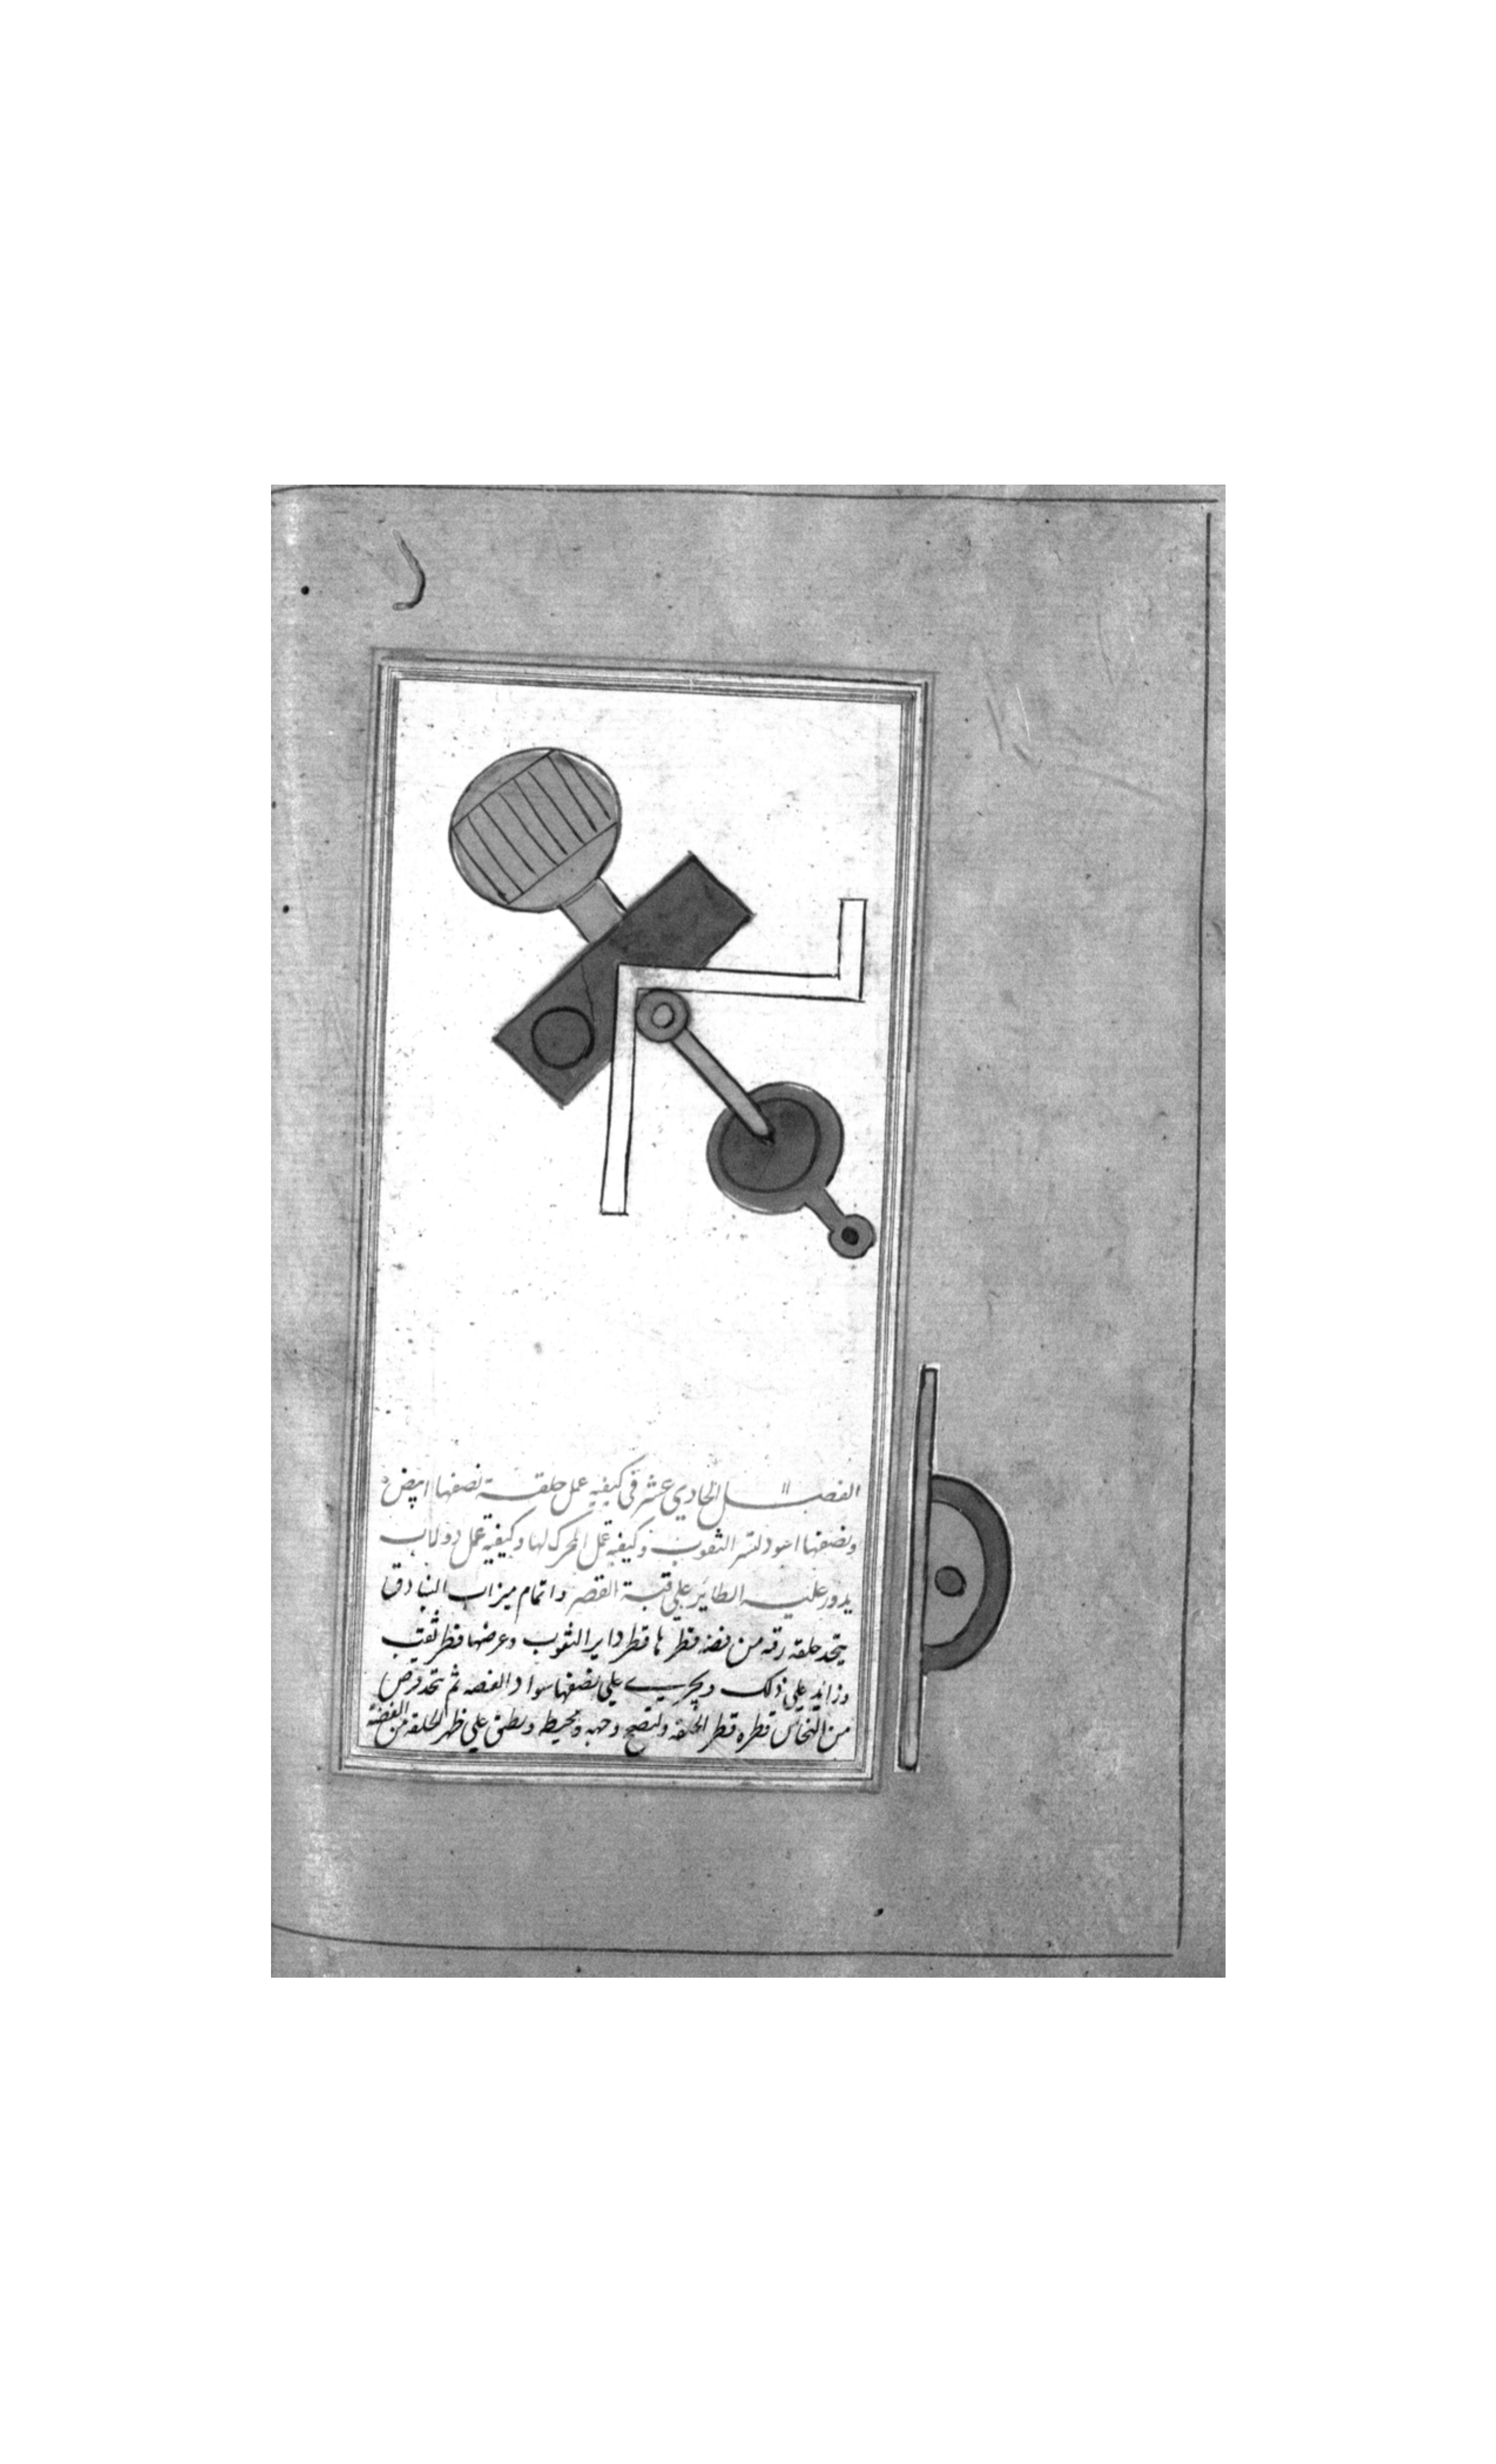 الفصل الحادي عشر في كيفيه عمل حلقة نصفها ابيض
ونصفها اسود لستر الثقوب وكيفية عمل المحرك لها وكيفية عمل دولاب
يدور عليه الطاير علي قبة القصر واتمام ميزاب البنادق
يتخذ حلقه رقه من فضه قطرها قطر داير الثقوب وعرضها قطر ثقب
وزايد علي ذلك ويجري علي نصفها سواد الفضه ثم يتخذ قرص
من النحاس قطره قطر الحلقه ولتصح وجهه ومحيط ويطبق علي ظهر الحلقه من الفضة